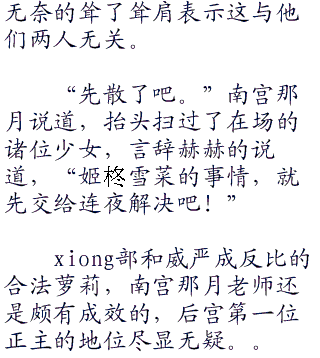 无奈的耸了耸肩表示这与他
们两人无关。
“先散了吧。”南宫那
月说道，抬头扫过了在场的
诸位少女，言辞赫赫的说
道，“姬柊雪菜的事情，就
先交给连夜解决吧！”
xiong部和威严成反比的
合法萝莉，南宫那月老师还
是颇有成效的，后宫第一位
正主的地位尽显无疑。。